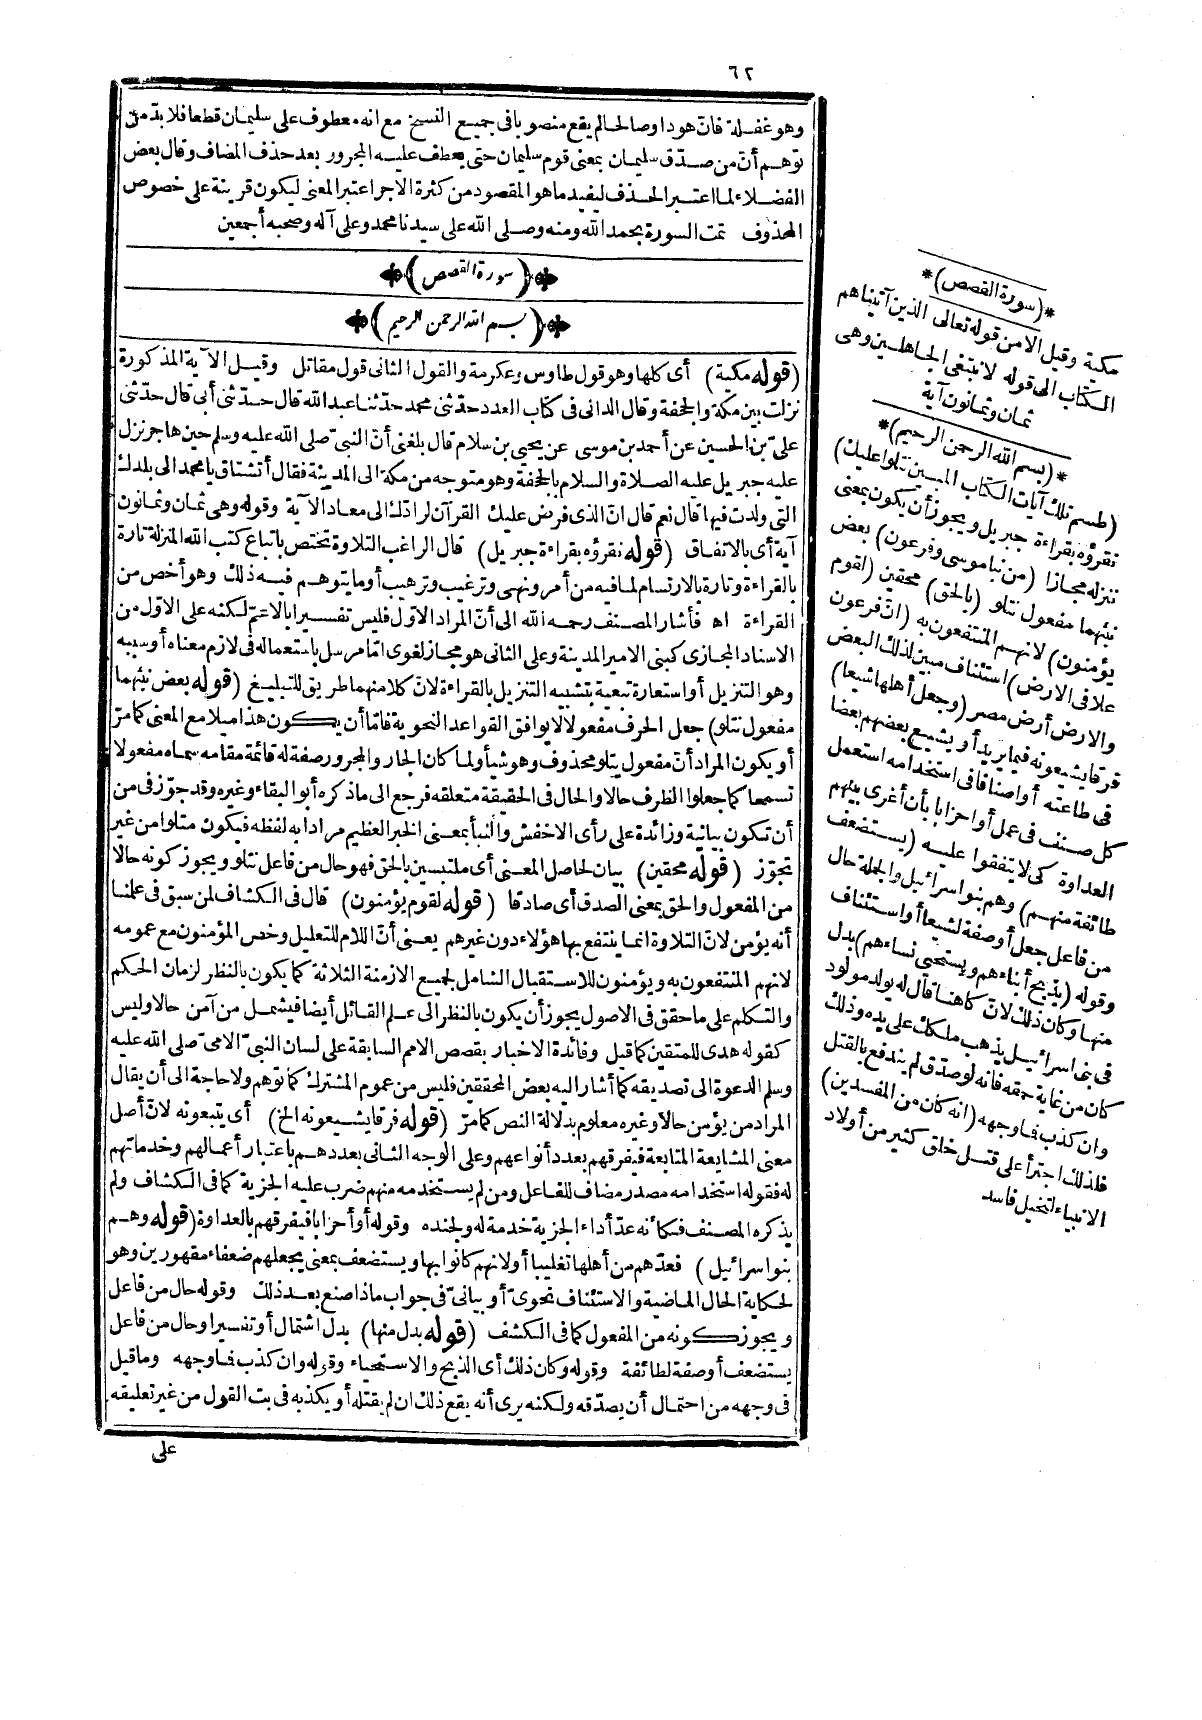 ٦٢
وهو غفلة فانّ هودا وصالحا لم يقع منصوبا فى جميع النسخ مع انه معطوف على سليمان قطعا فلا بدّ من
توهم أنّ من صدّق سليمان بمعنى قوم سليمان حتى يعطف عليه المجرور بعد حذف المضاف وقال بعض
الفضلاء لما اعتبر الحذف ليفيد ما هو المقصود من كثرة الاجر اعتبر المعنى ليكون قرينة على خصوص
المحذوف تمت السورة بحمد الله ومنه وصلى الله على سيدنا محمد وعلى آله وصحبه أجمعين
(سورة القصص)
(بسم الله الرحمن الرحيم)
(قوله مكية) أى كلها وهو قول طاوس وعكرمة والقول الثانى قول مقاتل وقيل الآية المذكورة
نزلت بين مكة والجحفة وقال الدانى فى كتاب العدد حدّثنى محمد حدّثنا عبد الله قال حدّثنى أبى قال حدّثنى
علىّ بن الحسين عن أحمد بن موسى عن يحيى بن سلام قال بلغنى أنّ النبىّ صلى الله عليه وسلم حين هاجر نزل
عليه جبريل عليه الصلاة والسلام بالجحفة وهو متوجه من مكة الى المدينة فقال أتشتاق يا محمد الى بلدك
التى ولدت فيها قال نعم قال انّ الذى فرض عليك القرآن لرادّك الى معاد الآية وقوله وهى ثمان وثمانون
آية أى بالاتفاق (قوله نقرؤه بقراءة جبريل) قال الراغب التلاوة تختص باتباع كتب الله المنزلة تارة
بالقراءة وتارة بالارتسام لما فيه من أمر ونهى وترغيب وترهيب أو ما يتوهم فيه ذلك وهو أخص من
القراءة اه فأشار المصنف رحمه الله الى أنّ المراد الاول فليس تفسيرا بالاعمّ لكنه على الاوّل من
الاسناد المجازى كبنى الامير المدينة وعلى الثانى هو مجاز لغوى امّا مرسل باستعماله فى لازم معناه أو سببه
وهو التنزيل أو استعارة تبعية بتشبيه التنزيل بالقراءة لانّ كلا منهما طريق للتبليغ (قوله بعض نبئهما
مفعول نتلو) جعل الحرف مفعولا لا يوافق القواعد النحوية فامّا أن يكون هذا ميلا مع المعنى كما مرّ
أو يكون المراد أنّ مفعول يتلو محذوف وهو شيأ ولما كان الجار والمجرور صفة له قائمة مقامه سماه مفعولا
تسمحا كما جعلوا الظرف حالا والحال فى الحقيقة متعلقه فرجع الى ما ذكره أبو البقاء وغيره وقد جوّز فى من
أن تكون بيانية وزائدة على رأى الاخفش والنبأ بمعنى الخبر العظيم مرادا به لفظه فيكون متلوا من غير
تجوّز (قوله محقين) بيان لحاصل المعنى أى ملتبسين بالحق فهو حال من فاعل نتلو ويجوز كونه حالا
من المفعول والحق بمعنى الصدق أى صادقا (قوله لقوم يؤمنون) قال فى الكشاف لمن سبق فى علمنا
أنه يؤمن لانّ التلاوة انما ينتفع بها هؤلاء دون غيرهم يعنى أنّ اللام للتعليل وخص المؤمنون مع عمومه
لانهم المنتفعون به ويؤمنون للاستقبال الشامل لجميع الازمنة الثلاثة كما يكون بالنظر لزمان الحكم
والتكلم على ما حقق فى الاصول يجوز أن يكون بالنظر الى علم القائل أيضا فيشمل من آمن حالا وليس
كقوله هدى للمتقين كما قيل وفائدة الاخبار بقصص الامم السابقة على لسان النبىّ الامى صلى الله عليه
وسلم الدعوة الى تصديقه كما أشار اليه بعض المحققين فليس من عموم المشترك كما توهم ولا حاجة الى أن يقال
المراد من يؤمن حالا وغيره معلوم بدلالة النص كما مرّ (قوله فرقا يشيعونه الخ) أى يتبعونه لانّ أصل
معنى المشايعة المتابعة فيفرقهم بعدد أنواعهم وعلى الوجه الثانى بعددهم باعتبار أعمالهم وخدماتهم
له فقوله استخدامه مصدر مضاف للفاعل ومن لم يستخدمه منهم ضرب عليه الجزية كما فى الكشاف ولم
يذكره المصنف فكأنه عدّ أداء الجزية خدمة له ولجنده وقوله أو أحزابا فيفرقهم بالعداوة (قوله وهم
بنو اسرائيل) فعدّهم من أهلها تغليبا أو لانهم كانوا بها ويستضعف بمعنى يجعلهم ضعفاء مقهورين وهو
لحكاية الحال الماضية والاستئناف نحوىّ أو بيانىّ فى جواب ماذا صنع بعد ذلك وقوله حال من فاعل
ويجوز كونه من المفعول كما فى الكشف (قوله بدل منها) بدل اشتمال أو تفسير أو حال من فاعل
يستضعف أو صفة لطائفة وقوله وكان ذلك أى الذبح والاستحياء وقوله وان كذب فما وجهه وما قيل
فى وجهه من احتمال أن يصدّقه ولكنه يرى أنه يقع ذلك ان لم يقتله أو يكذبه فى بت القول من غير تعليقه
على
*(سورة القصص)*
مكية وقيل الا من قوله تعالى الذين آتيناهم
الكتاب الى قوله لا نبتغى الجاهلين وهى
ثمان وثمانون آية
*(بسم الله الرحمن الرحيم)*
(طسم تلك آيات الكتاب المبين نتلوا عليك)
نقرؤه بقراءة جبريل ويجوز أن يكون بمعنى
ننزله مجازا (من نبا موسى وفرعون) بعض
نبئهما مفعول نتلو (بالحق) محقين (لقوم
يؤمنون) لانهم المنتفعون به (انّ فرعون
علا فى الارض) استئناف مبين لذلك البعض
والارض أرض مصر (وجعل أهلها شيعا)
فرقا يشيعونه فيما يريد أو يشيع بعضهم بعضا
فى طاعته أو أصنافا فى استخدامه استعمل
كل صنف فى عمل أو احزابا بأن أغرى بينهم
العداوة كى لا يتفقوا عليه (يستضعف
طائفة منهم) وهم بنو اسرائيل والجملة حال
من فاعل جعل أو صفة لشيعا أو استئناف
وقوله (يذبح أبناءهم ويستحيى نساءهم) بدل
منها وكان ذلك لانّ كاهنا قال له يولد مولود
فى بنى اسرائيل يذهب ملكك على يده وذلك
كان من غاية حمقه فانه لو صدق لم يندفع بالقتل
وان كذب فما وجهه (انه كان من المفسدين)
فلذلك اجترأ على قتل خلق كثير من أولاد
الانبياء لتخيل فاسد